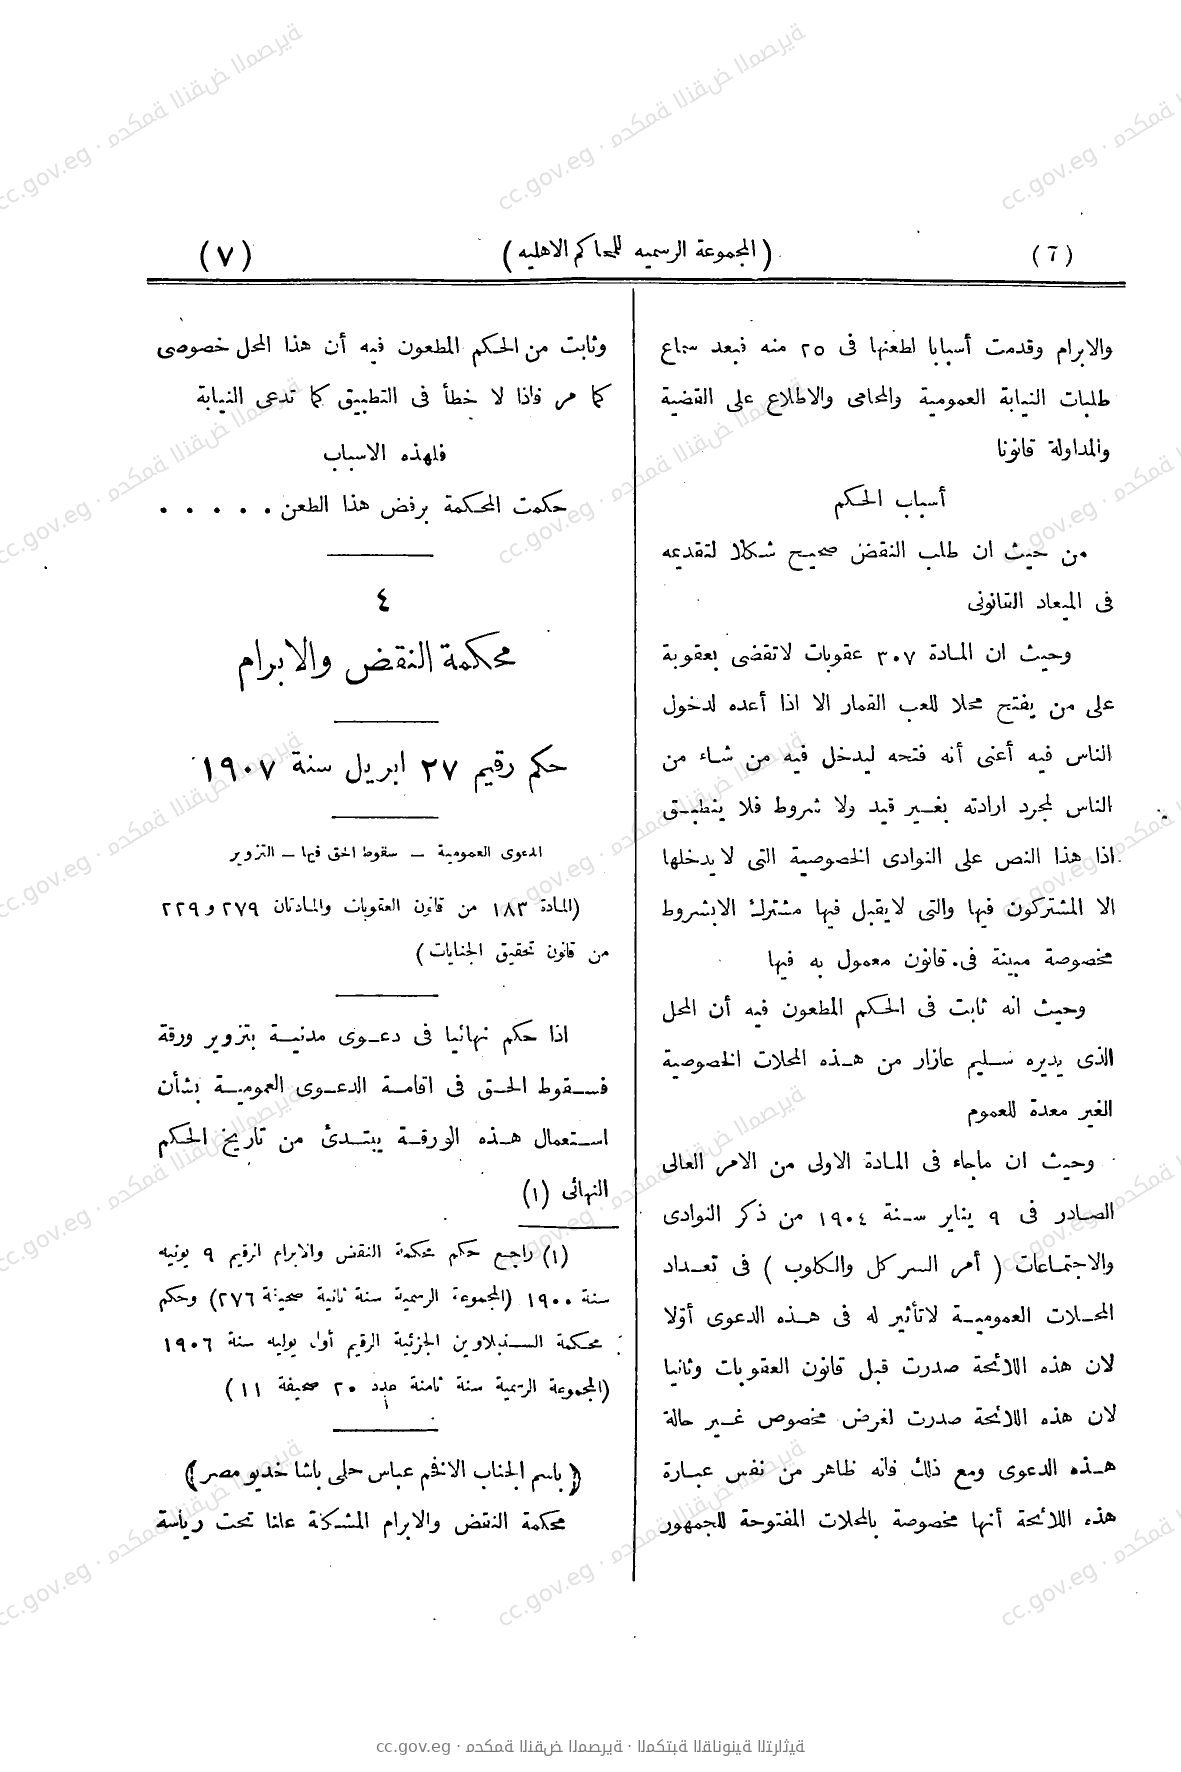 (٦)
(المجموعة الرسميه للمحاكم الاهليه)
(٧)
والابرام وقدمت أسبابا لطعنها فى ٢٥ منه فبعد سماع
طلبات النيابة العمومية والمحامى والاطلاع على القضية
والمداولة قانونا
أسباب الحكم
من حيث ان طلب النقض صحيح شكلا لتقديمه
فى الميعاد القانونى
وحيث ان المادة ٣٠٧ عقوبات لا تقضى بعقوبة
على من يفتح محلا للعب القمار الا اذا أعده لدخول
الناس فيه أعنى أنه فتحه ليدخل فيه من شاء من
الناس لمجرد ارادته بغير قيد ولا شروط فلا ينطبق
اذا هذا النص على النوادى الخصوصية التى لا يدخلها
الا المشتركون فيها والتى لا يقبل فيها مشترك الا بشروط
مخصوصة مبينة فى قانون معمول به فيها
وحيث انه ثابت فى الحكم المطعون فيه أن المحل
الذى يديره سليم عازار من هذه المحلات الخصوصية
الغير معدة للعموم
وحيث ان ماجاء فى المادة الاولى من الامر العالى
الصادر فى ٩ يناير سنة ١٩٠٤ من ذكر النوادى
والاجتماعات ( أمر السركل والكلوب ) فى تعداد
المحلات العمومية لا تأثير له فى هذه الدعوى أوّلا
لان هذه اللائحة صدرت قبل قانون العقوبات وثانيا
لان هذه اللائحة صدرت لغرض مخصوص غير حالة
هذه الدعوى ومع ذلك فانه ظاهر من نفس عبارة
هذه اللائحة أنها مخصوصة بالمحلات المفتوحة للجمهور
وثابت من الحكم المطعون فيه أن هذا المحل خصوصى
كما مر فاذا لا خطأ فى التطبيق كما تدعى النيابة
فلهذه الاسباب
حكمت المحكمة برفض هذا الطعن . . . . .
٤
محكمة النقض والابرام
حكم رقيم ٢٧ ابريل سنة ١٩٠٧
الدعوى العمومية – سقوط الحق فيها – التزوير
(المادة ١٨٣ من قانون العقوبات والمادتان ٢٧٩ و ٢٢٩
من قانون تحقيق الجنايات)
اذا حكم نهائيا فى دعوى مدنية بتزوير ورقة
فسقوط الحق فى اقامة الدعوى العمومية بشأن
استعمال هذه الورقة يبتدئ من تاريخ الحكم
النهائى (١)
(١) راجع حكم محكمة النقض والابرام الرقيم ٩ يونيه
سنة ١٩٠٠ (المجموعة الرسمية سنة ثانية صحيفة ٢٧٦) وحكم
محكمة السنبلاوين الجزئية الرقيم أول يوليه سنة ١٩٠٦
(المجموعة الرسمية سنة ثامنة عدد ٢٠ صحيفة ١١)
(باسم الجناب الافخم عباس حلمى باشا خديو مصر)
محكمة النقض والابرام المشكلة علنا تحت رياسة
cc.gov.eg · محكمة النقض المصرية · المكتبة القانونية التراثية